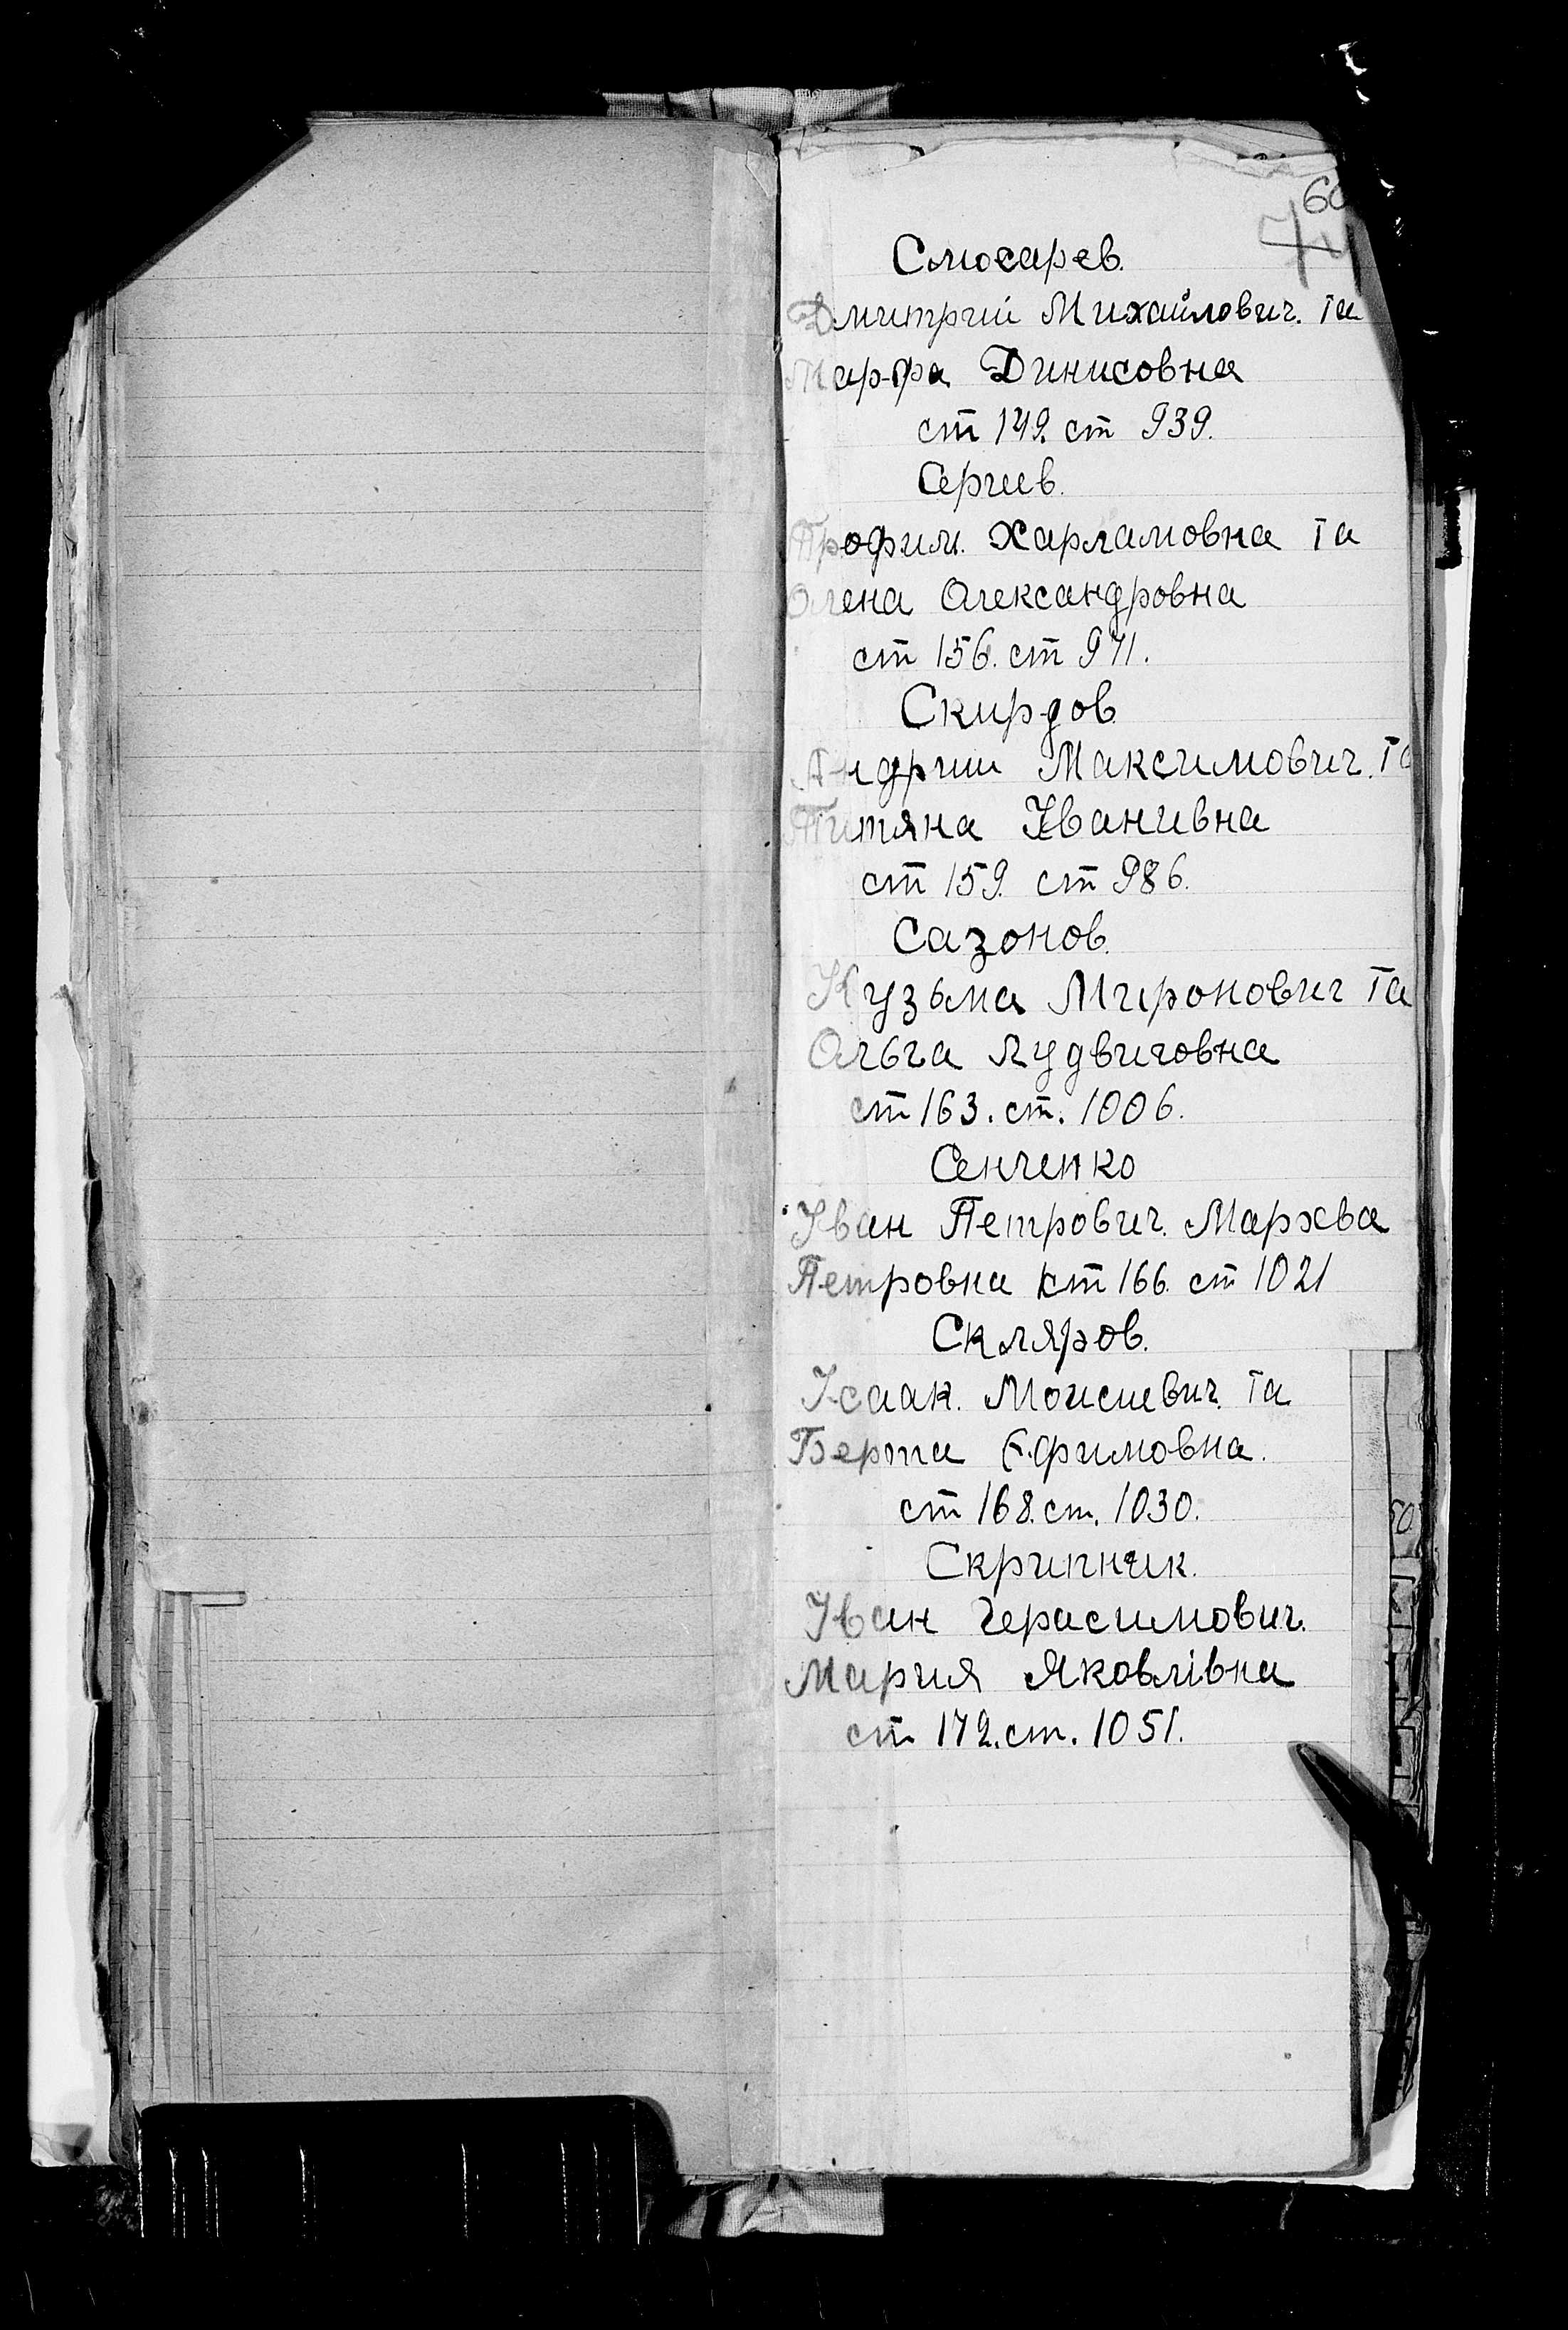 Слюсарев.
Дмитрий Михайлович. та
Марфа Динисовна
ст 149. ст 939.
Сергиев.
Трофим. Харламовна та
Олена Олександровна
ст 156. ст 971.
Скирдов
Андрии Максимович. та
Титяна Іванивна
ст 159. ст 986.
Сазонов.
Кузьма Миронович та
Ольга Лудвиговна
ст 163. ст. 1006.
Сенченко
Іван Петрович. Мархва
Петровна ст 166. ст 1021
Скляров.
Ісаак. Моисиевич. та
Берта Єфимовна.
ст 168. ст. 1030.
Скрипник.
Іван Герасимович.
Мария Яковлівна
ст 172. ст. 1051.